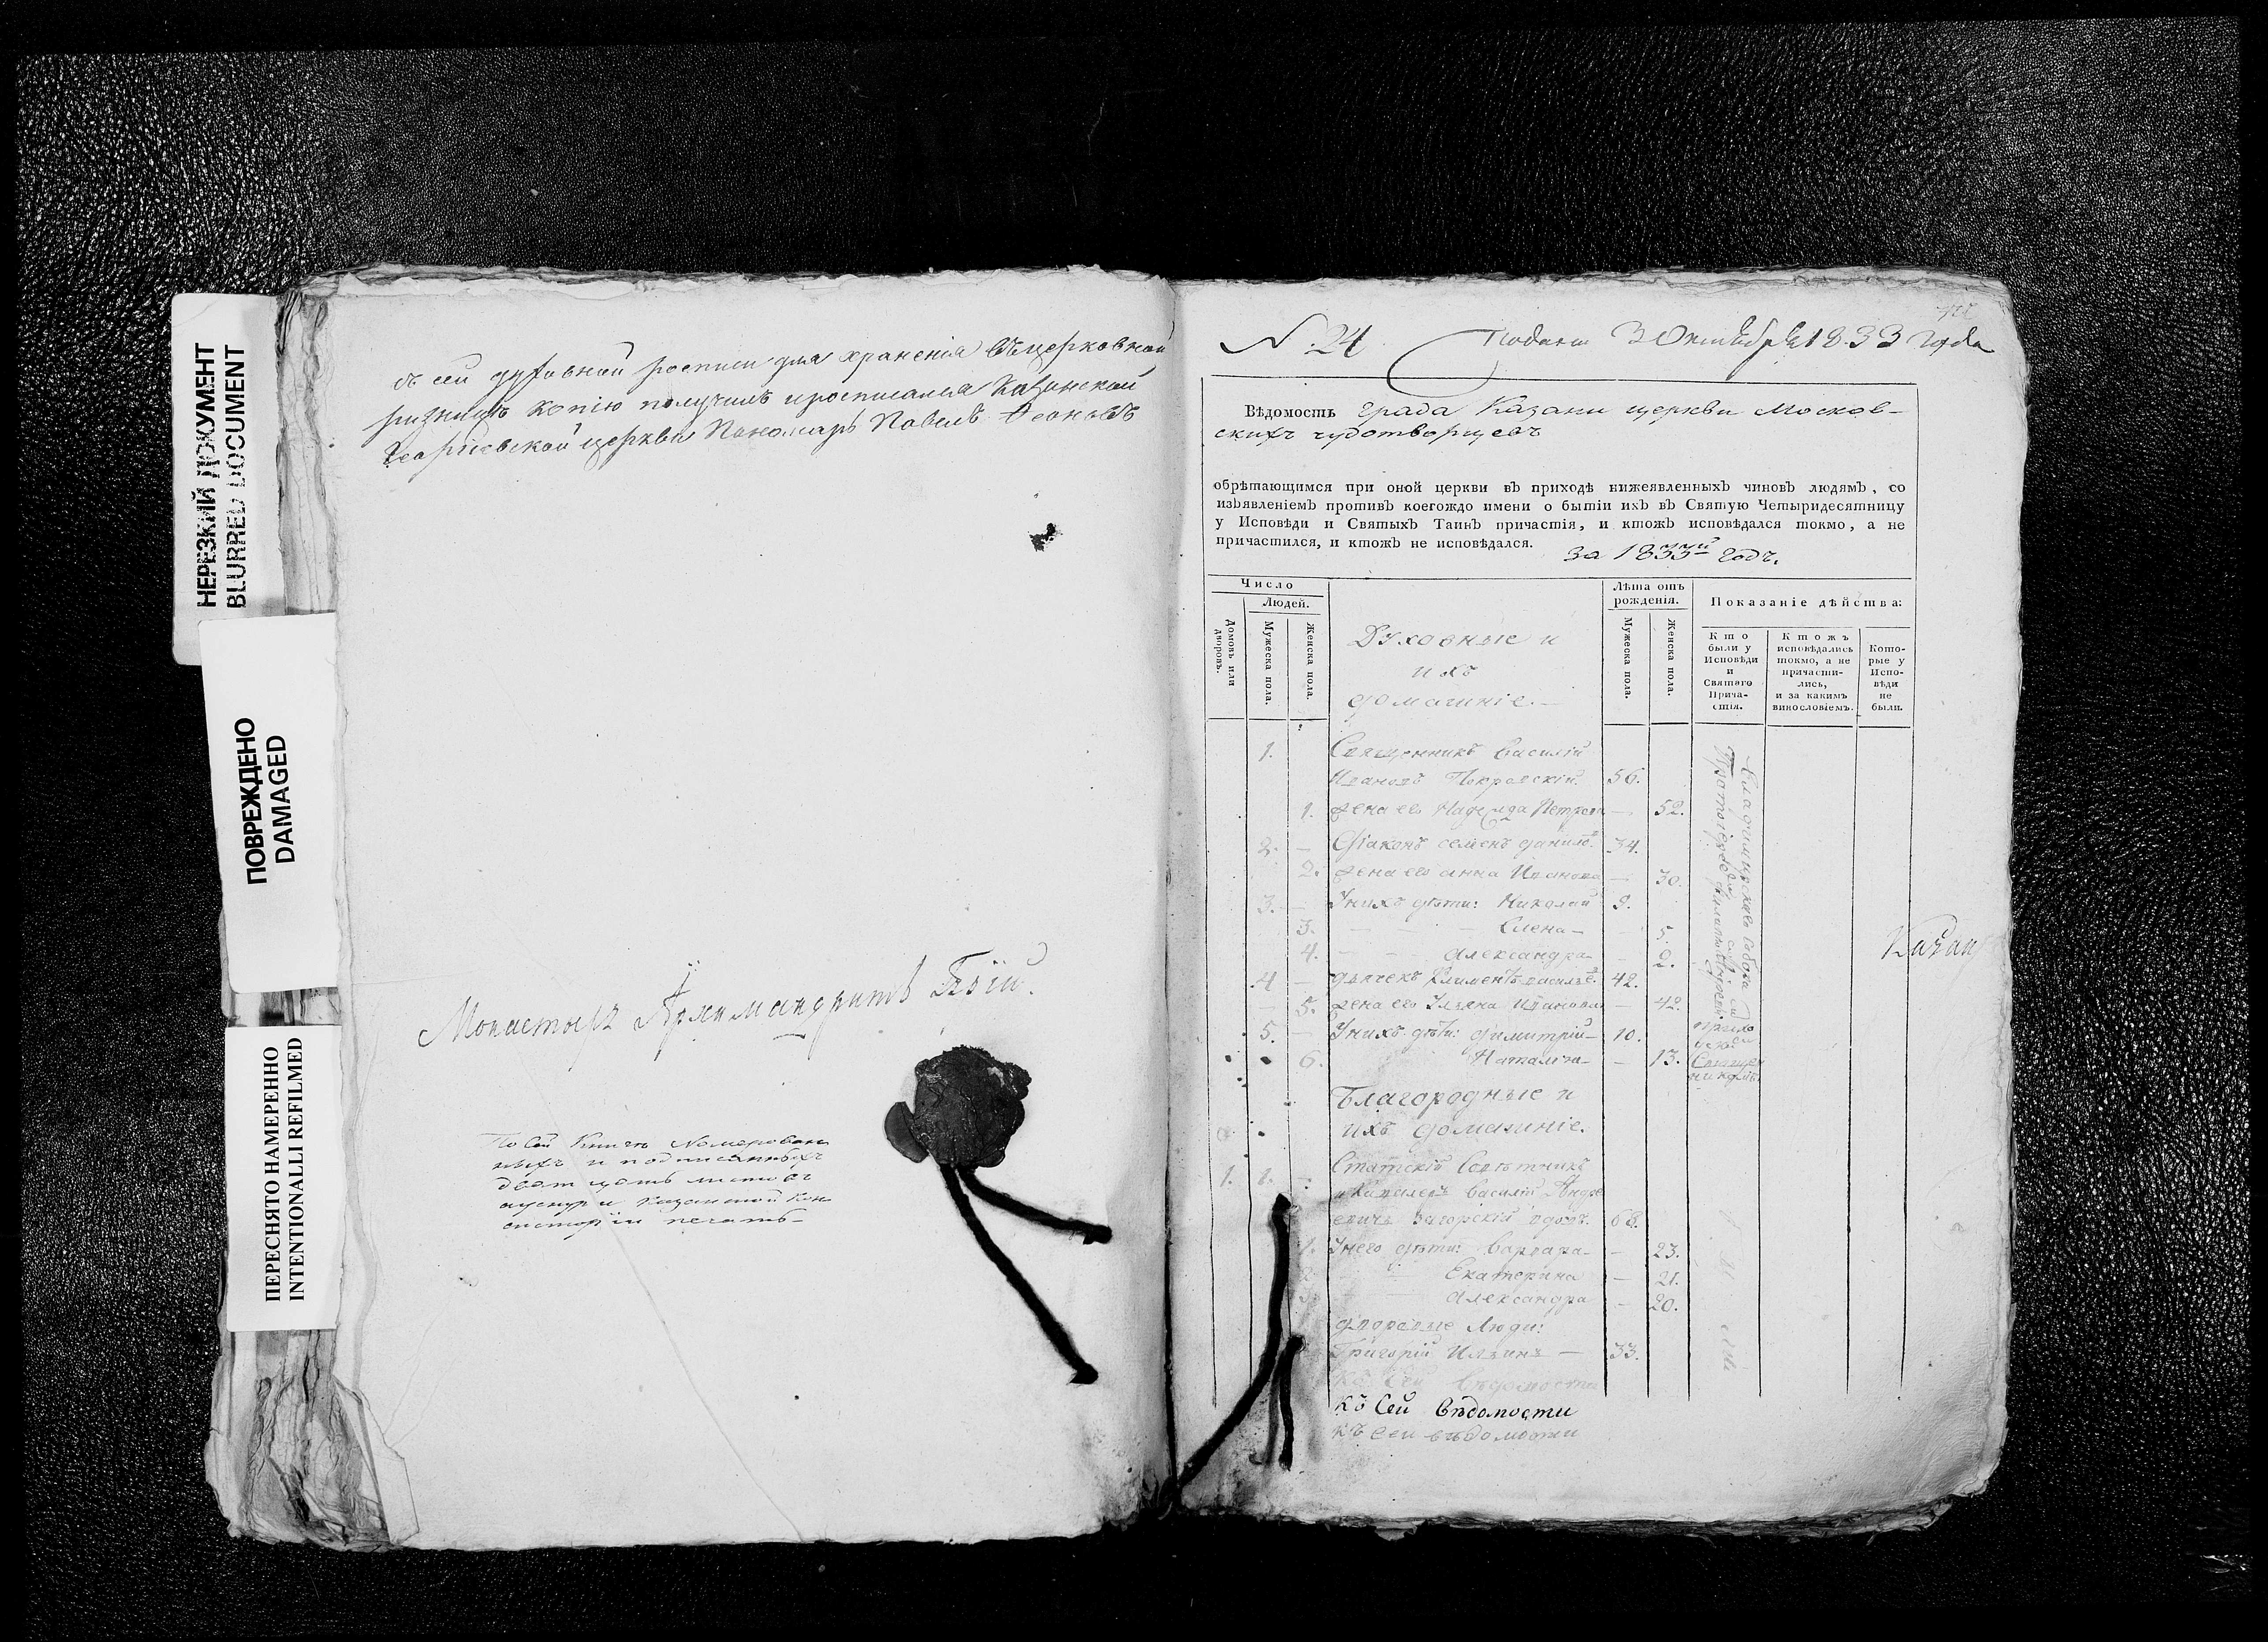 НЕРЕЗКИЙ ДОКУМЕНТ
BLURRED DOCUMENT
ПОВРЕЖДЕНО
DAMAGED
ПЕРЕСНЯТО НАМЕРЕННО
INTENTIONALLI REFILMED
съ сей духовной росписи для храненiя въ церковной
ризницѣ копiю получилъ и росписался Казанской
Георгiевской церкви Пономарь Павелъ
Монастыря Архимандритъ
По сей книгѣ номерован
ныхъ и подписанныхъ
листовъ
казанской кон
систорiи печать
N. 24 Подана 3 Октября 1833 года
Вѣдомость града Казани церкви Москов-
скихъ чудотворцевъ
обрѣтающимся при оной церкви въ приходѣ нижеявленныхъ чиновъ людямъ, со
изъявленiемъ противъ коегождо имени о бытiи ихъ въ Святую Четыридесятницу
у Исповѣди и Святыхъ Таинъ причастiя, и ктожъ исповѣдался токмо, а не
причастился, и ктожъ не исповѣдался.
за 1833й годъ.
Число
Людей.
Домовъ или дворовъ.
Мужеска пола.
Женска пола.
Духовные и
ихъ
домашнiе.
Лѣта отъ
рожденiя.
Мужеска пола.
Женска пола.
Показанiе дѣйства:
Кто
были у
Исповѣди
и
Святаго
Прича-
стiя.
Ктожъ
исповѣдались
токмо, а не
причасти-
лись,
и за какимъ
винословiемъ.
Кото-
рые у
Испо-
вѣди
не
были.
1. Священникъ Василiй
Ивановъ Покровскiй 56.
1. жена его Надежда Петрова — 52.
2. — Дiаконъ Семенъ Данилъ 34.
2. жена его Анна Иванова — 30.
3. — У нихъ дѣти: Николай 9.
3. Елена — 5.
4. Александра — 2.
4 — дьячекъ Климентъ 42.
5. жена его Ульяна Иванова — 42.
5. — У нихъ дѣти: Димитрiй — 10.
6. Наталiя — 13.
Благородные и
ихъ домашнiе.
1. 1. Статскiй Совѣтникъ
и Кавалеръ Василiй Андре
евичъ Загорскiй вдовъ. 68.
1. У него дѣти: Варвара — 23.
Екатерина — 21.
Александра — 20.
Дворовые люди:
Григорiй Ильинъ — 33.
Къ сей вѣдомости
Къ сей вѣдомости
Къ сей вѣдомости